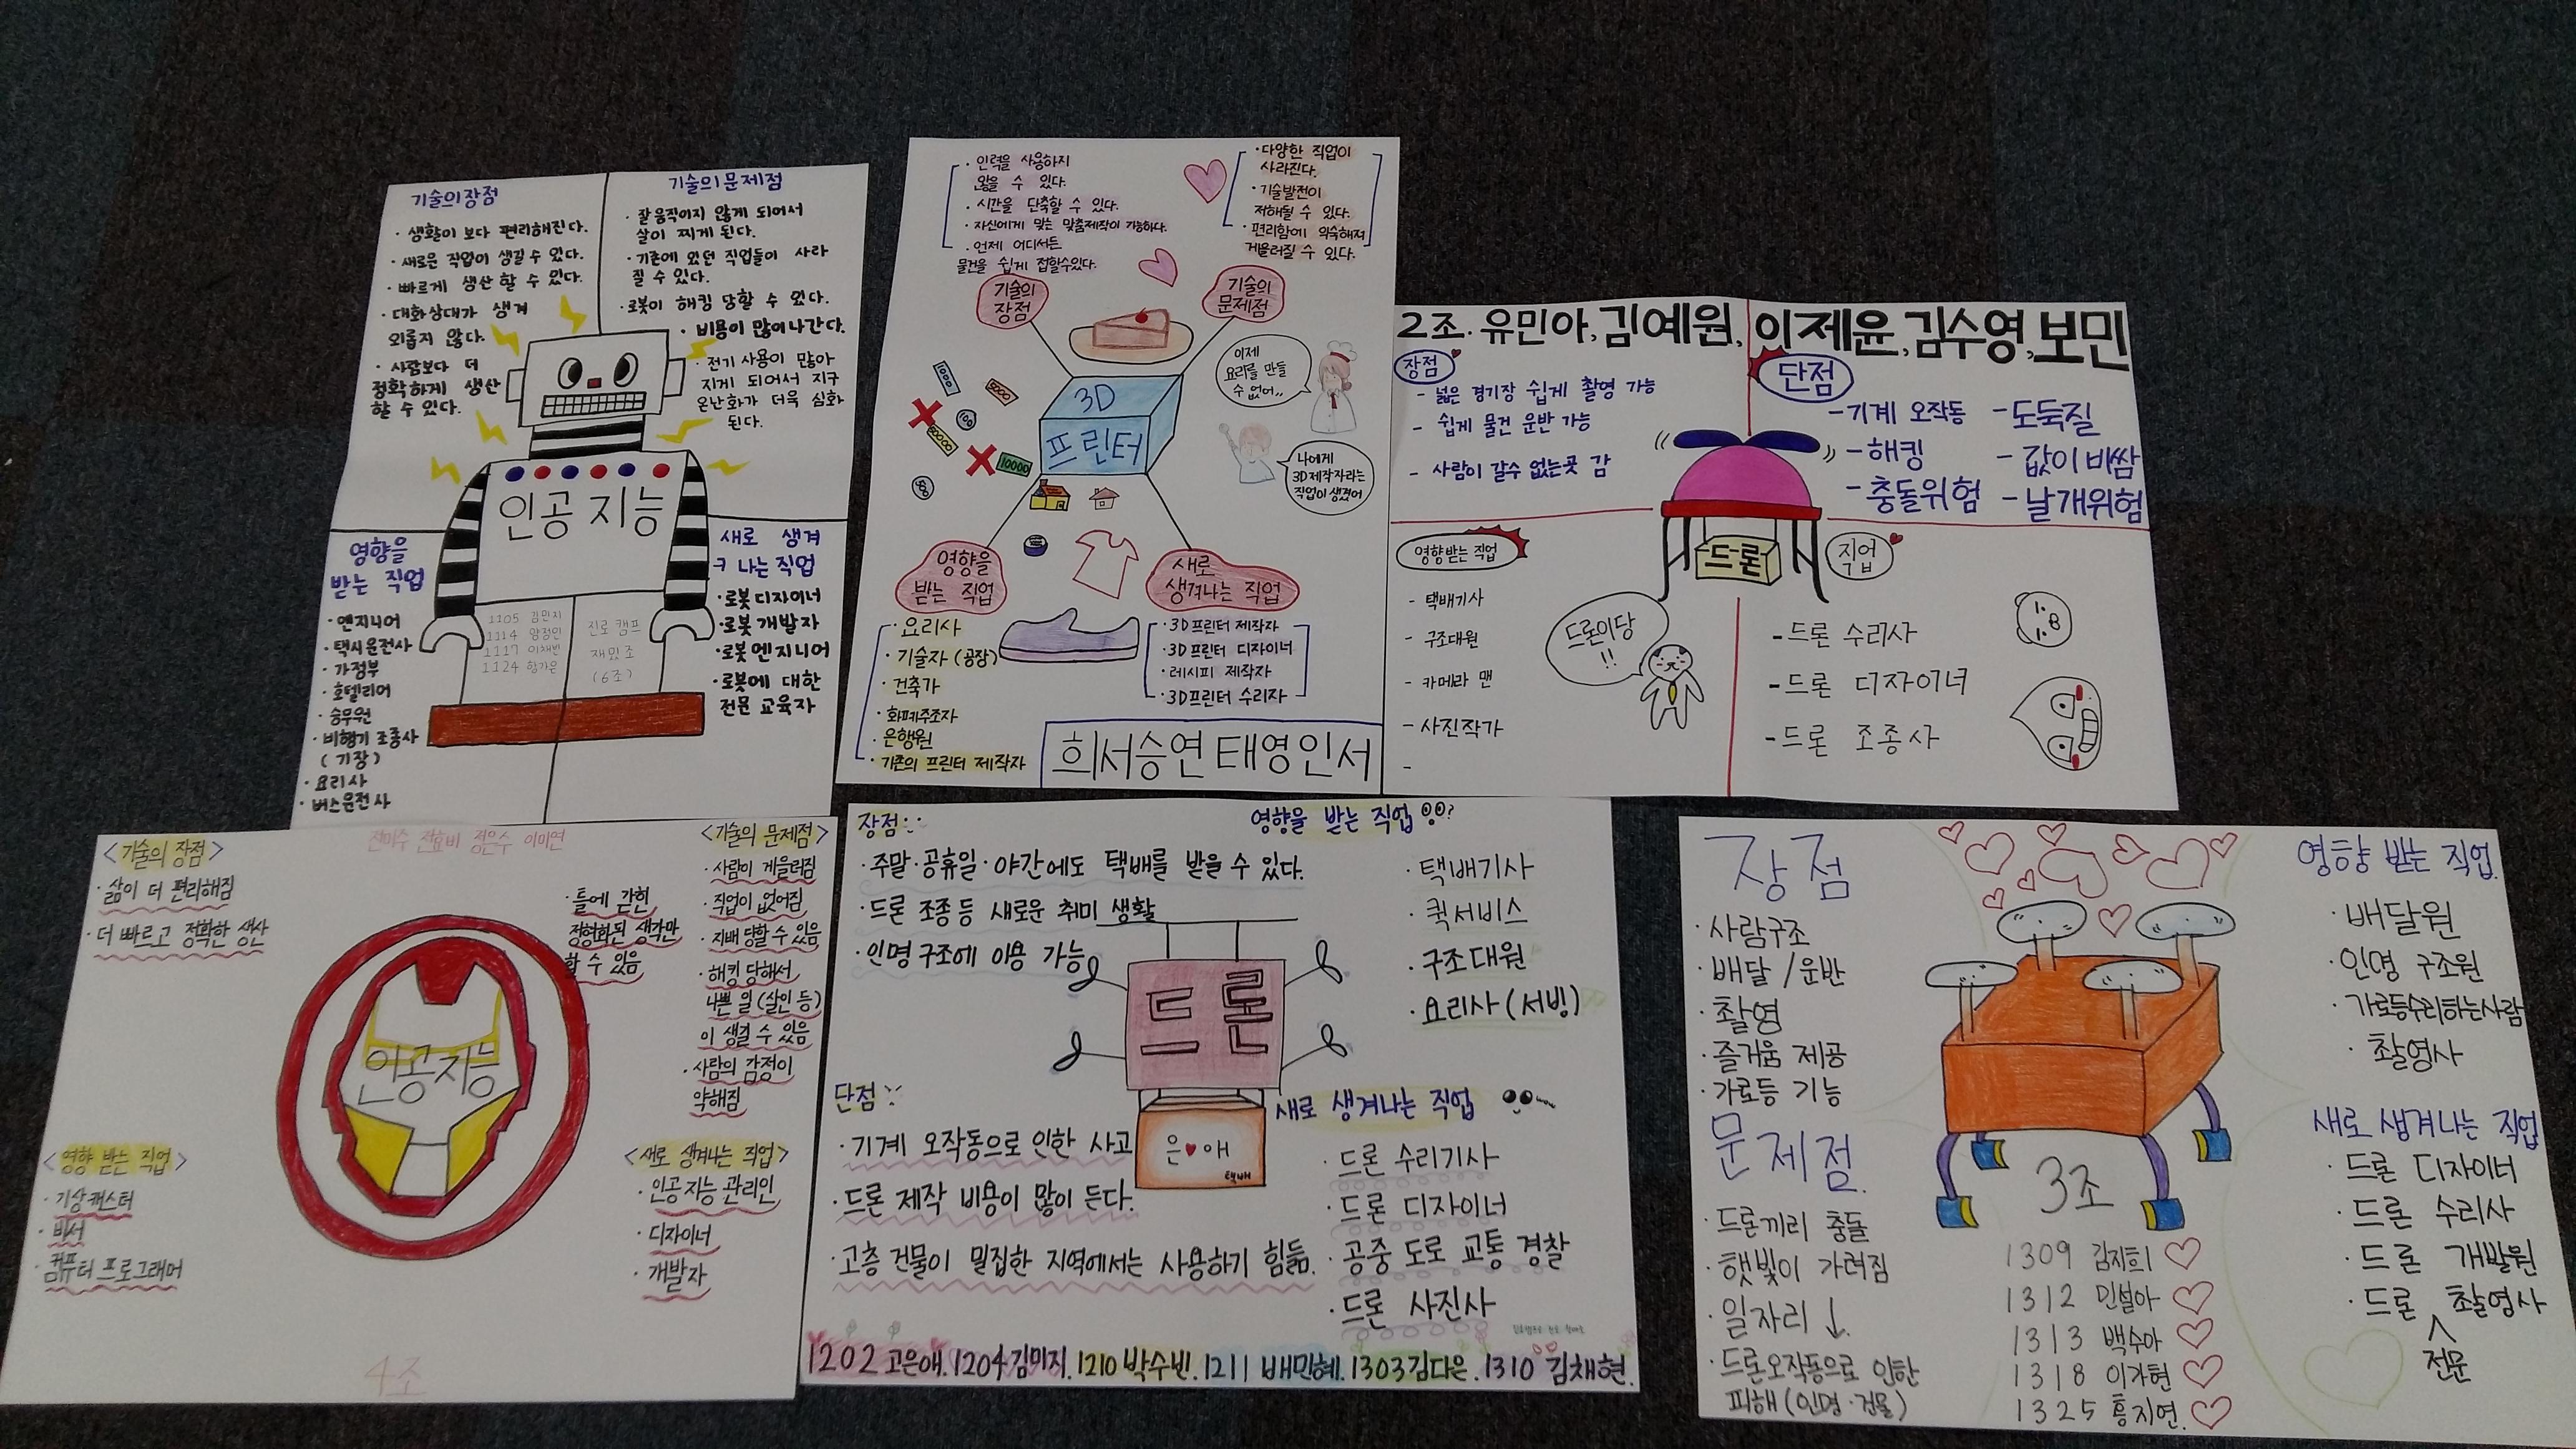 기술의 장점
· 생활이 보다 편리해진다.
· 새로운 직업이 생길 수 있다.
· 빠르게 생산 할 수 있다.
· 대화상대가 생겨
외롭지 않다.
· 사람보다 더
정확하게 생산
할 수 있다.
기술의 문제점
· 잘 움직이지 않게 되어서
살이 찌게 된다.
· 기존에 있던 직업들이 사라
질 수 있다.
· 로봇이 해킹 당할 수 있다.
· 비용이 많이 나간다.
· 전기 사용이 많아
지게 되어서 지구
온난화가 더욱 심화
된다.
인공 지능
영향을
받는 직업
· 엔지니어
· 택시운전사
· 가정부
· 호텔리어
· 승무원
· 비행기 조종사
(기장)
· 요리사
· 버스운전사
새로 생겨
ㅋ 나는 직업
· 로봇 디자이너
· 로봇 개발자
· 로봇 엔지니어
· 로봇에 대한
전문 교육자
1105 김민지
1114 양정인
1117 이채빈
1124 황가은
진로 캠프
재밌조
(6조)
· 인력을 사용하지
않을 수 있다.
· 시간을 단축할 수 있다.
· 자신에게 맞는 맞춤제작이 가능하다.
· 언제 어디서든
물건을 쉽게 접할수있다.
· 다양한 직업이
사라진다.
· 기술발전이
저해될 수 있다.
· 편리함에 익숙해져
게을러질 수 있다.
기술의
장점
기술의
문제점
이제
요리를 만들
수 없어..
3D
프린터
나에게
3D제작자라는
직업이 생겼어
10000
영향을
받는 직업
새로
생겨나는 직업
· 요리사
· 기술자 (공장)
· 건축가
· 화폐주조자
· 은행원
· 기존의 프린터 제작자
· 3D프린터 제작자
· 3D프린터 디자이너
· 레시피 제작자
· 3D프린터 수리자
희서승연태영인서
2조. 유민아, 김예원, 이제윤, 김수영, 보민
장점
- 넓은 경기장 쉽게 촬영 가능
- 쉽게 물건 운반 가능
- 사람이 갈수 없는곳 감
단점
- 기계 오작동
- 해킹
- 충돌위험
- 도둑질
- 값이 비쌈
- 날개위험
드론
영향받는 직업
- 택배기사
- 구조대원
- 카메라 맨
- 사진작가
-
드론이당
!!
직업
- 드론 수리사
- 드론 디자이너
- 드론 조종사
<기술의 장점>
· 삶이 더 편리해짐
· 더 빠르고 정확한 생산
전효비 정은수 이미연
<기술의 문제점>
· 사람이 게을러짐
· 직업이 없어짐
· 지배 당할 수 있음
· 해킹 당해서
나쁜 일 (살인 등)
이 생길 수 있음
· 사람의 감정이
약해짐
· 틀에 갇힌
정형화된 생각만
할 수 있음
인공지능
<영향 받는 직업>
· 기상캐스터
· 비서
· 컴퓨터 프로그래머
<새로 생겨나는 직업>
· 인공지능 관리인
· 디자이너
· 개발자
4조
장점:
· 주말·공휴일·야간에도 택배를 받을 수 있다.
· 드론 조종 등 새로운 취미 생활
· 인명 구조에 이용 가능
영향을 받는 직업 ?
· 택배기사
· 퀵서비스
· 구조대원
· 요리사 (서빙)
드론
은♥애
택배
단점:
· 기계 오작동으로 인한 사고
· 드론 제작 비용이 많이 든다.
· 고층 건물이 밀집한 지역에서는 사용하기 힘듦.
새로 생겨나는 직업
· 드론 수리기사
· 드론 디자이너
· 공중 도로 교통 경찰
· 드론 사진사
1202 고은애. 1204 김미지. 1210 박수빈. 1211 배민혜. 1303 김다은. 1310 김채현.
장점
· 사람구조
· 배달 / 운반
· 촬영
· 즐거움 제공
· 가로등 기능
문제점
· 드론끼리 충돌
· 햇빛이 가려짐
· 일자리 ↓
· 드론오작동으로 인한
피해 (인명·건물)
영향 받는 직업
· 배달원
· 인명 구조원
· 가로등수리하는사람
· 촬영사
새로 생겨나는 직업
· 드론 디자이너
· 드론 수리사
· 드론 개발원
· 드론 촬영사
전문
3조
1309 김지희
1312 민설아
1313 백수아
1318 이가현
1325 홍지연